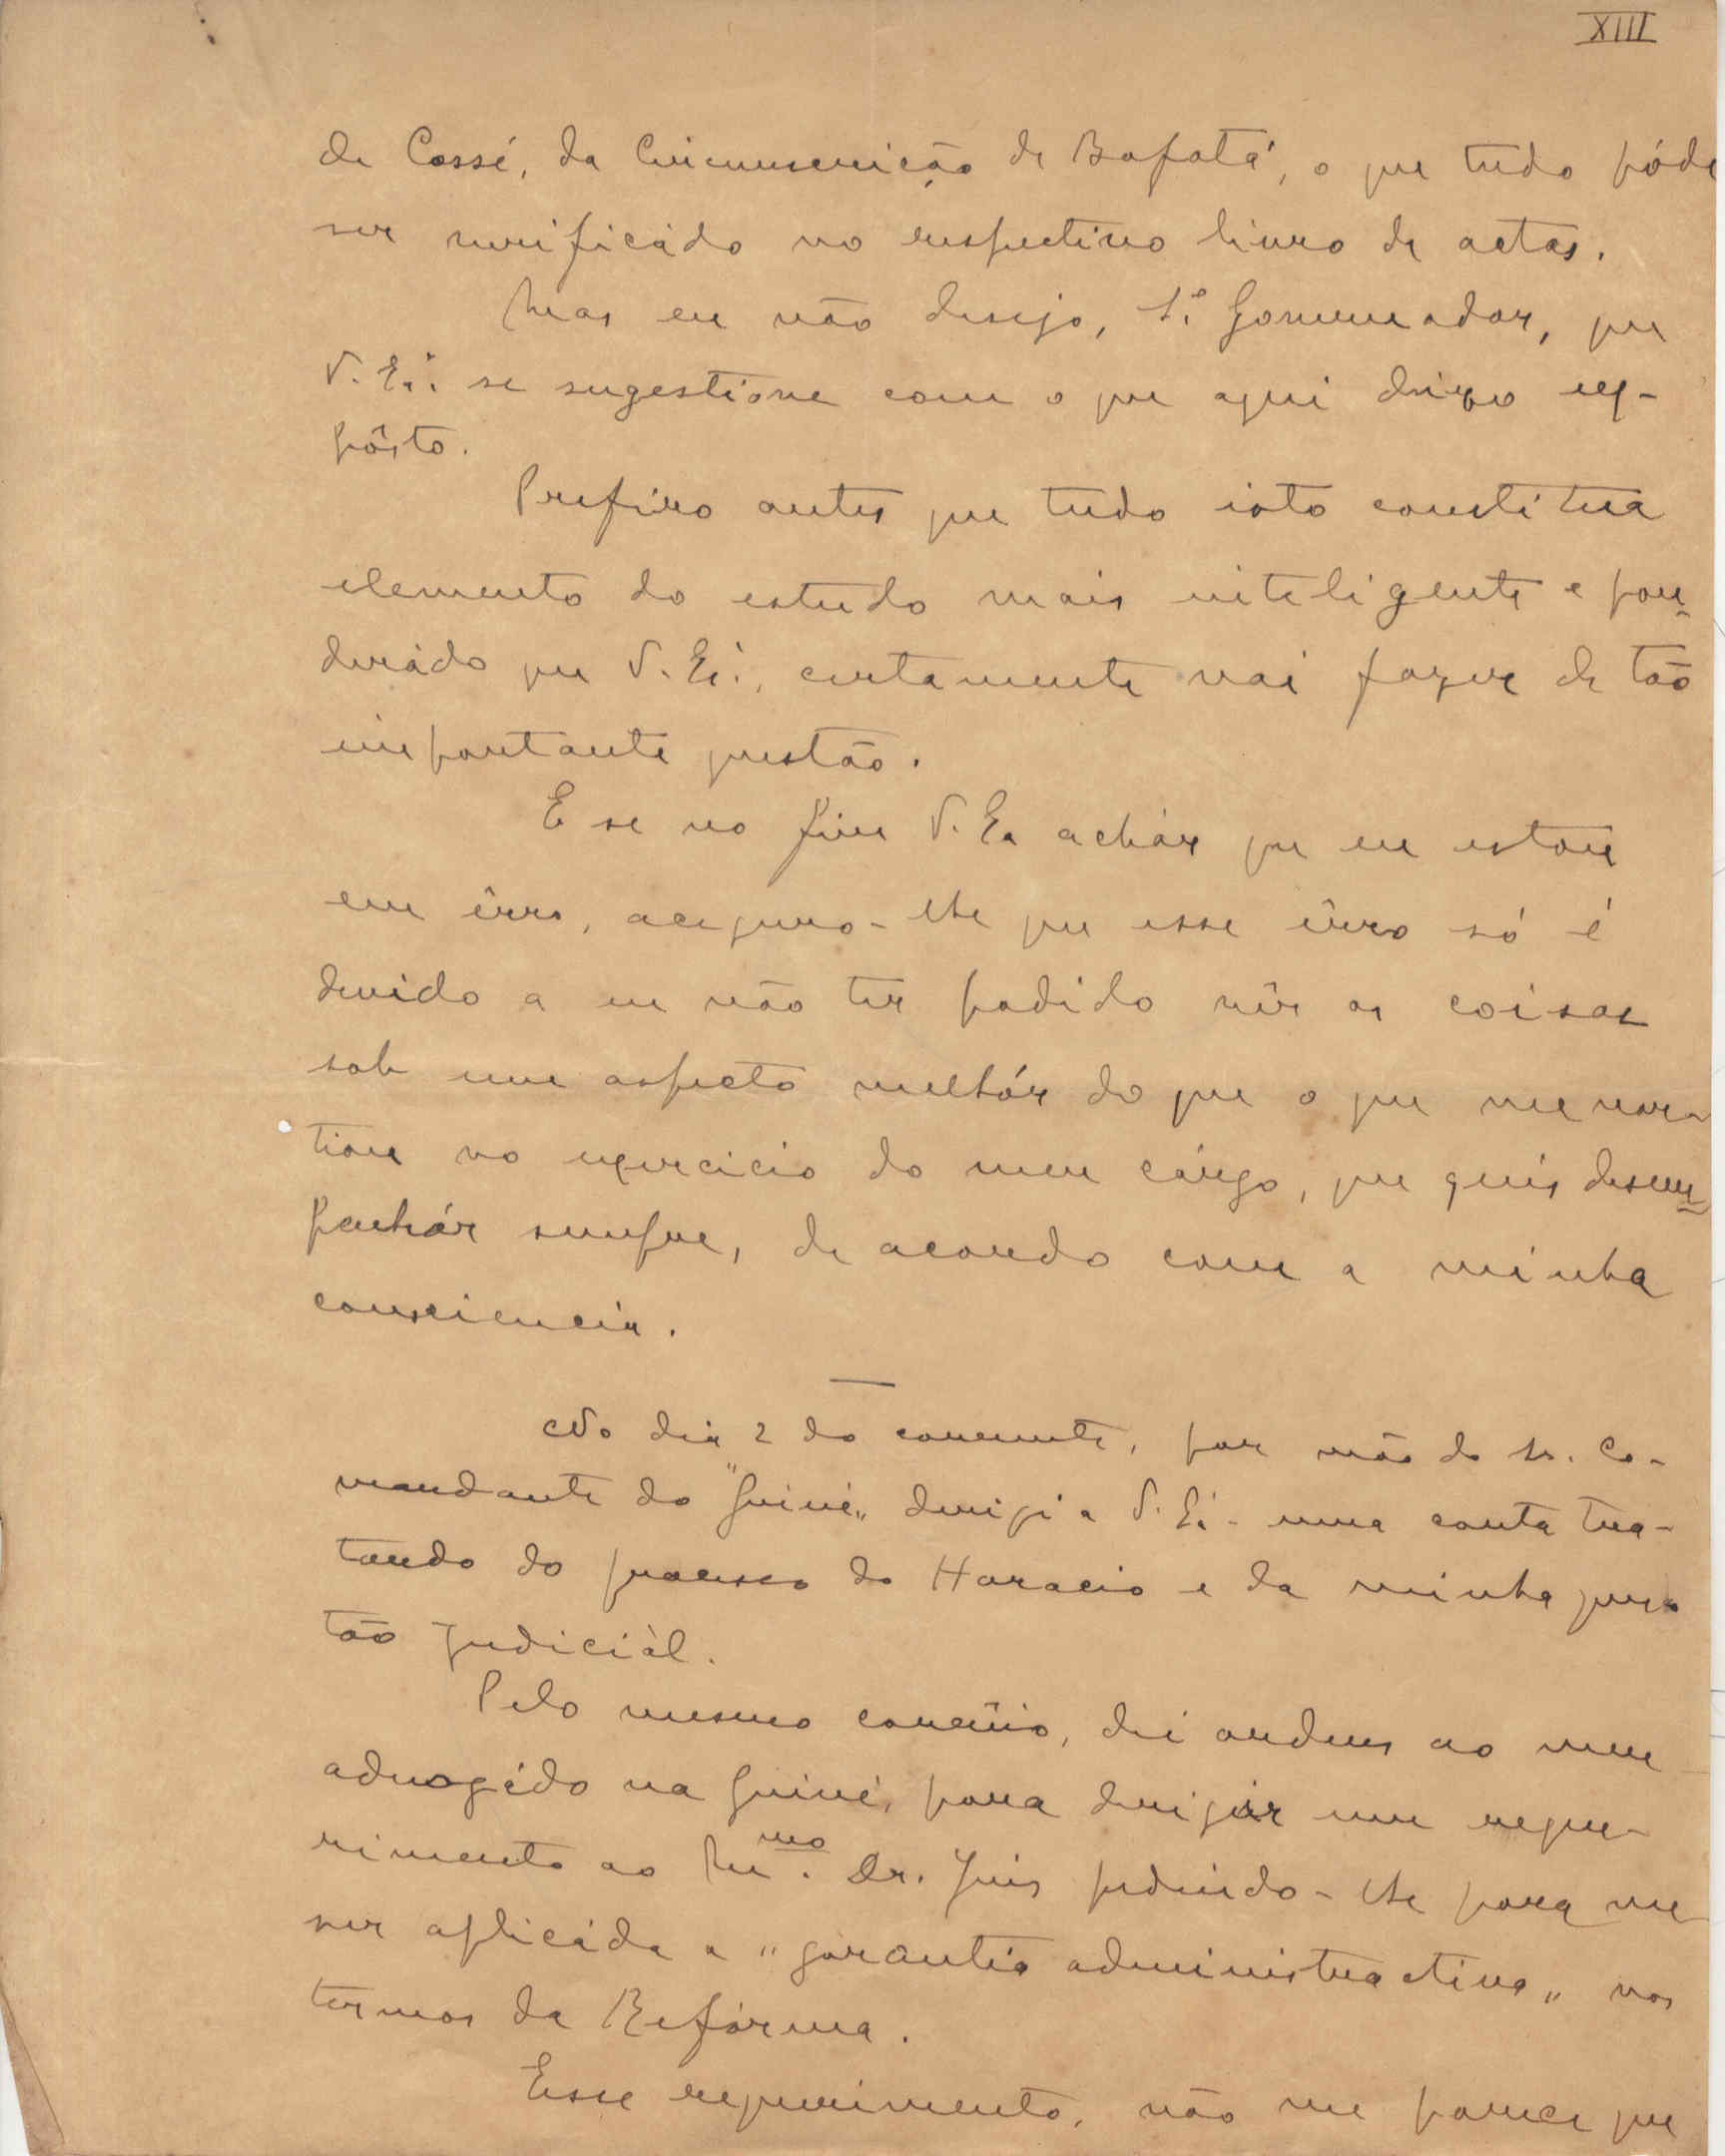 XIII
de Cossé, da Circunscrição de Bafatá, o que tudo póde
ser verificádo no respectivo livro de actas.
Mas eu não desejo, Sr. Governador, que
V. Exa. se sugestione com o que aqui deixo ex-
pôsto.
Prefiro antes que tudo isto constitua
elemento do estudo mais inteligente e pon-
derádo que V. Exa., certamente vai fazer de tão
importante questão.
E se no fim V. Exa achár que eu estou
em êrro, aceguro-lhe que esse êrro só é
devido a eu não ter podido vêr as coisas
sob um aspecto melhór do que o que me nor-
tiou no exercicio do meu cárgo, que quis desem-
penhár sempre, de acordo com a minha
consciencia.
No dia 2 do corrente, por mão do Sr. Co-
mandante do "Guiné„ derigi a V. Exa. uma carta tra-
tando do processo do Horacio e da minha ques-
tão judiciál.
Pelo mesmo corrêio, dei ordens ao meu
advogádo na Guiné, para derigir um reque-
rimento ao Mmo. Dr. Juis pedindo-lhe para me
ser aplicáda a "garantia administractiva„ nos
termos da Refórma.
Esse requerimento, não me parece que